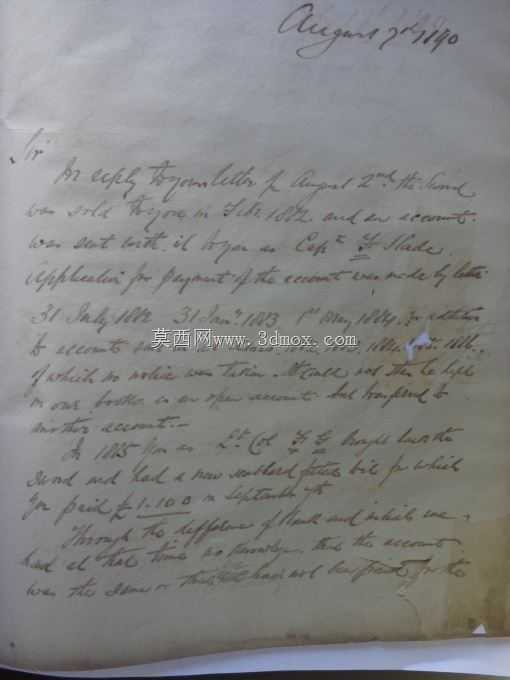 August 7th 1890
Sir
In reply to your letter of August 2nd the Sword
was sold to you in Feb. 1882 and an account
was sent with it to you as Captn F. Slade.
Application for payment of the account was made by letter
31 July 1882 31 Jany 1883 1st May 1884 in addition
to accounts
莫西网 www.3dmox.com
of which no notice was taken. It could not then be kept
in our books as an open account but transferred to
another account.—
In 1885 you as Lt Col F. G. brought back the
sword and had a new scabbard fitted for which
you paid £1-10-0 in September
Through the difference of Rank and initials we
had at that time no knowledge that the account
was the same or that had not been paid for the